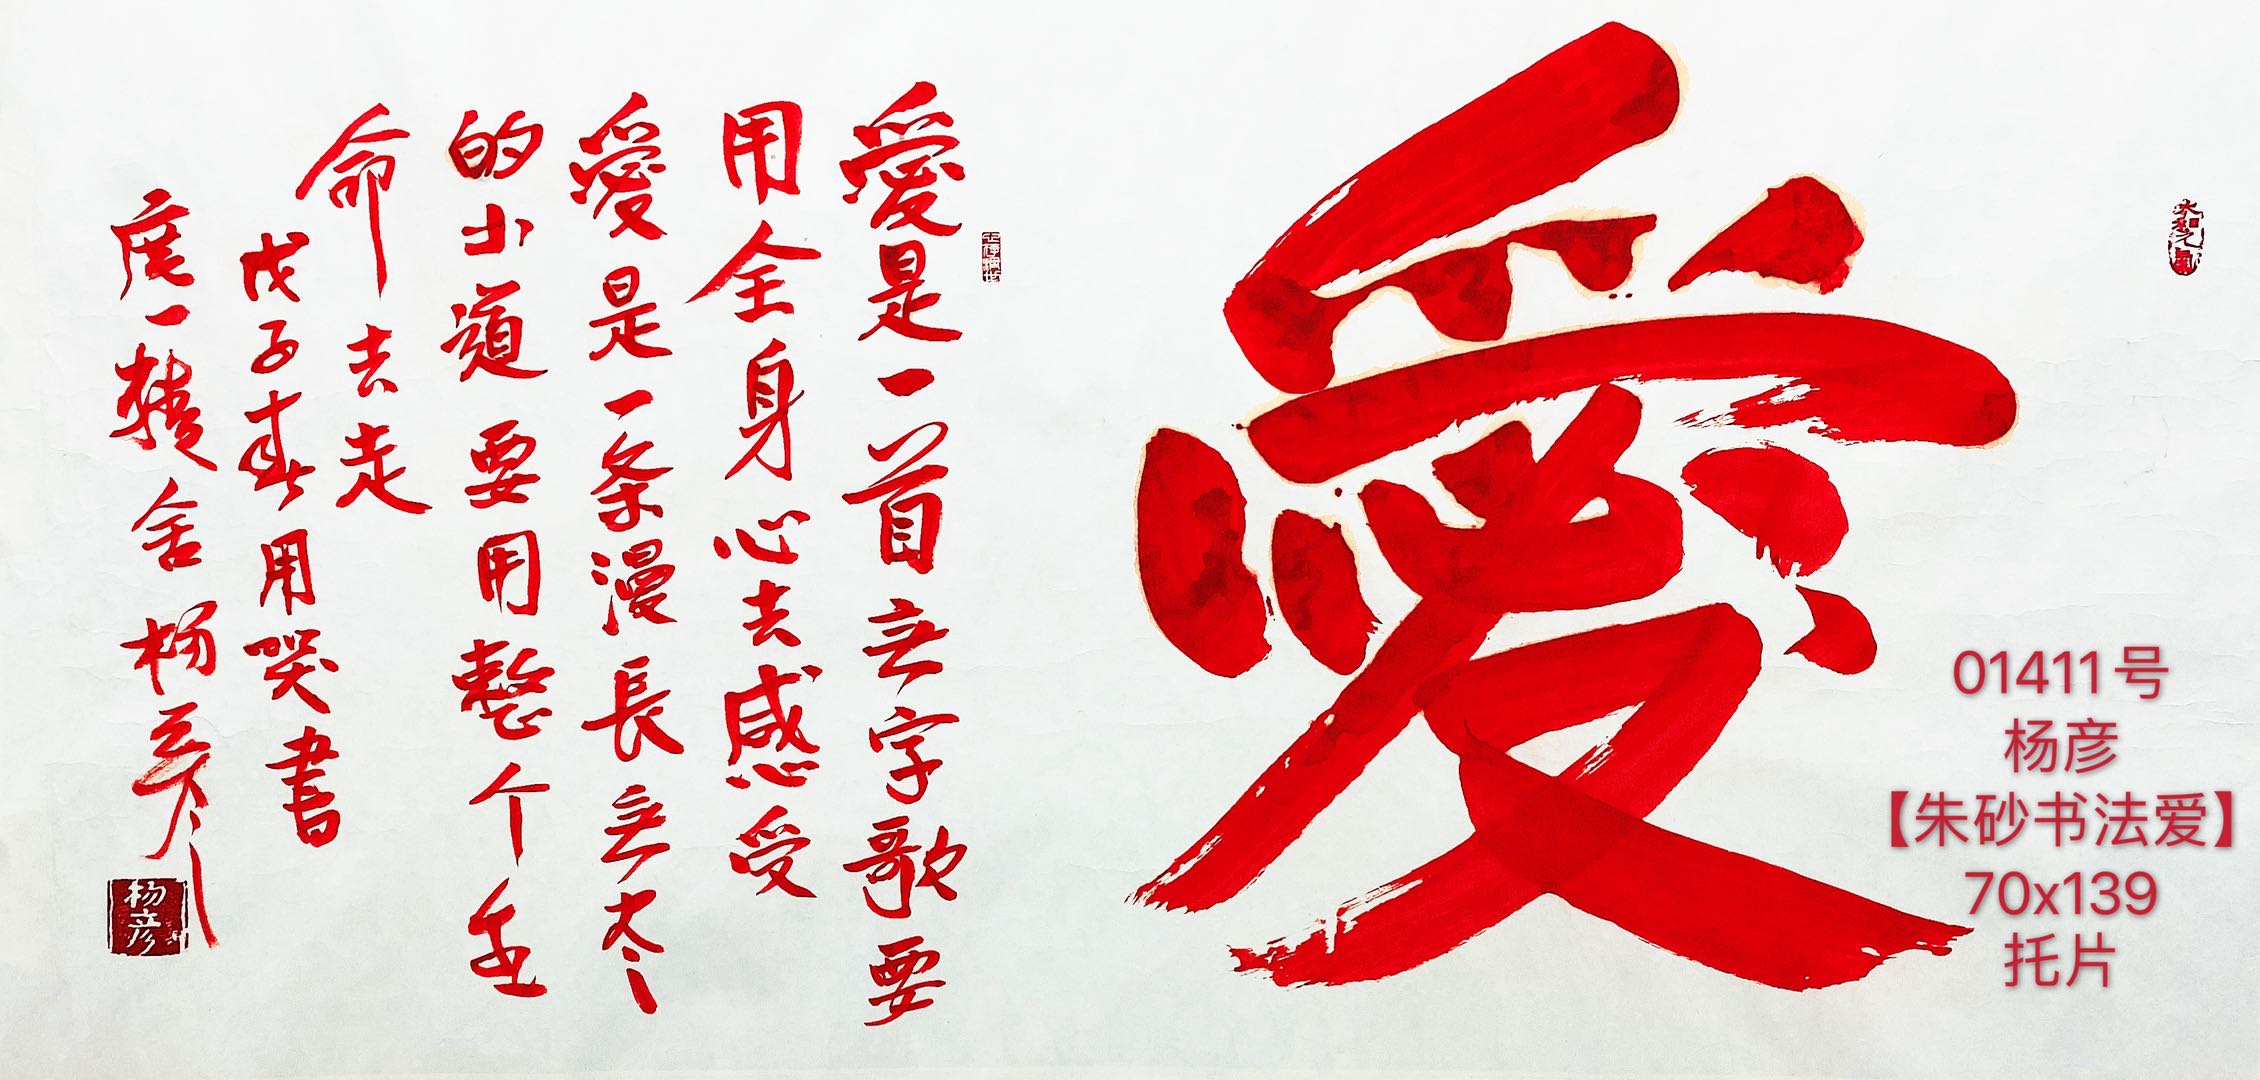 愛
愛是一首無字歌要
用全身心去感受
愛是一条漫長無尽
的小道要用整个生
命去走
戊子春用哭書
度一精舍杨彦
杨彦
01411号
杨彦
【朱砂书法爱】
70x139
托片